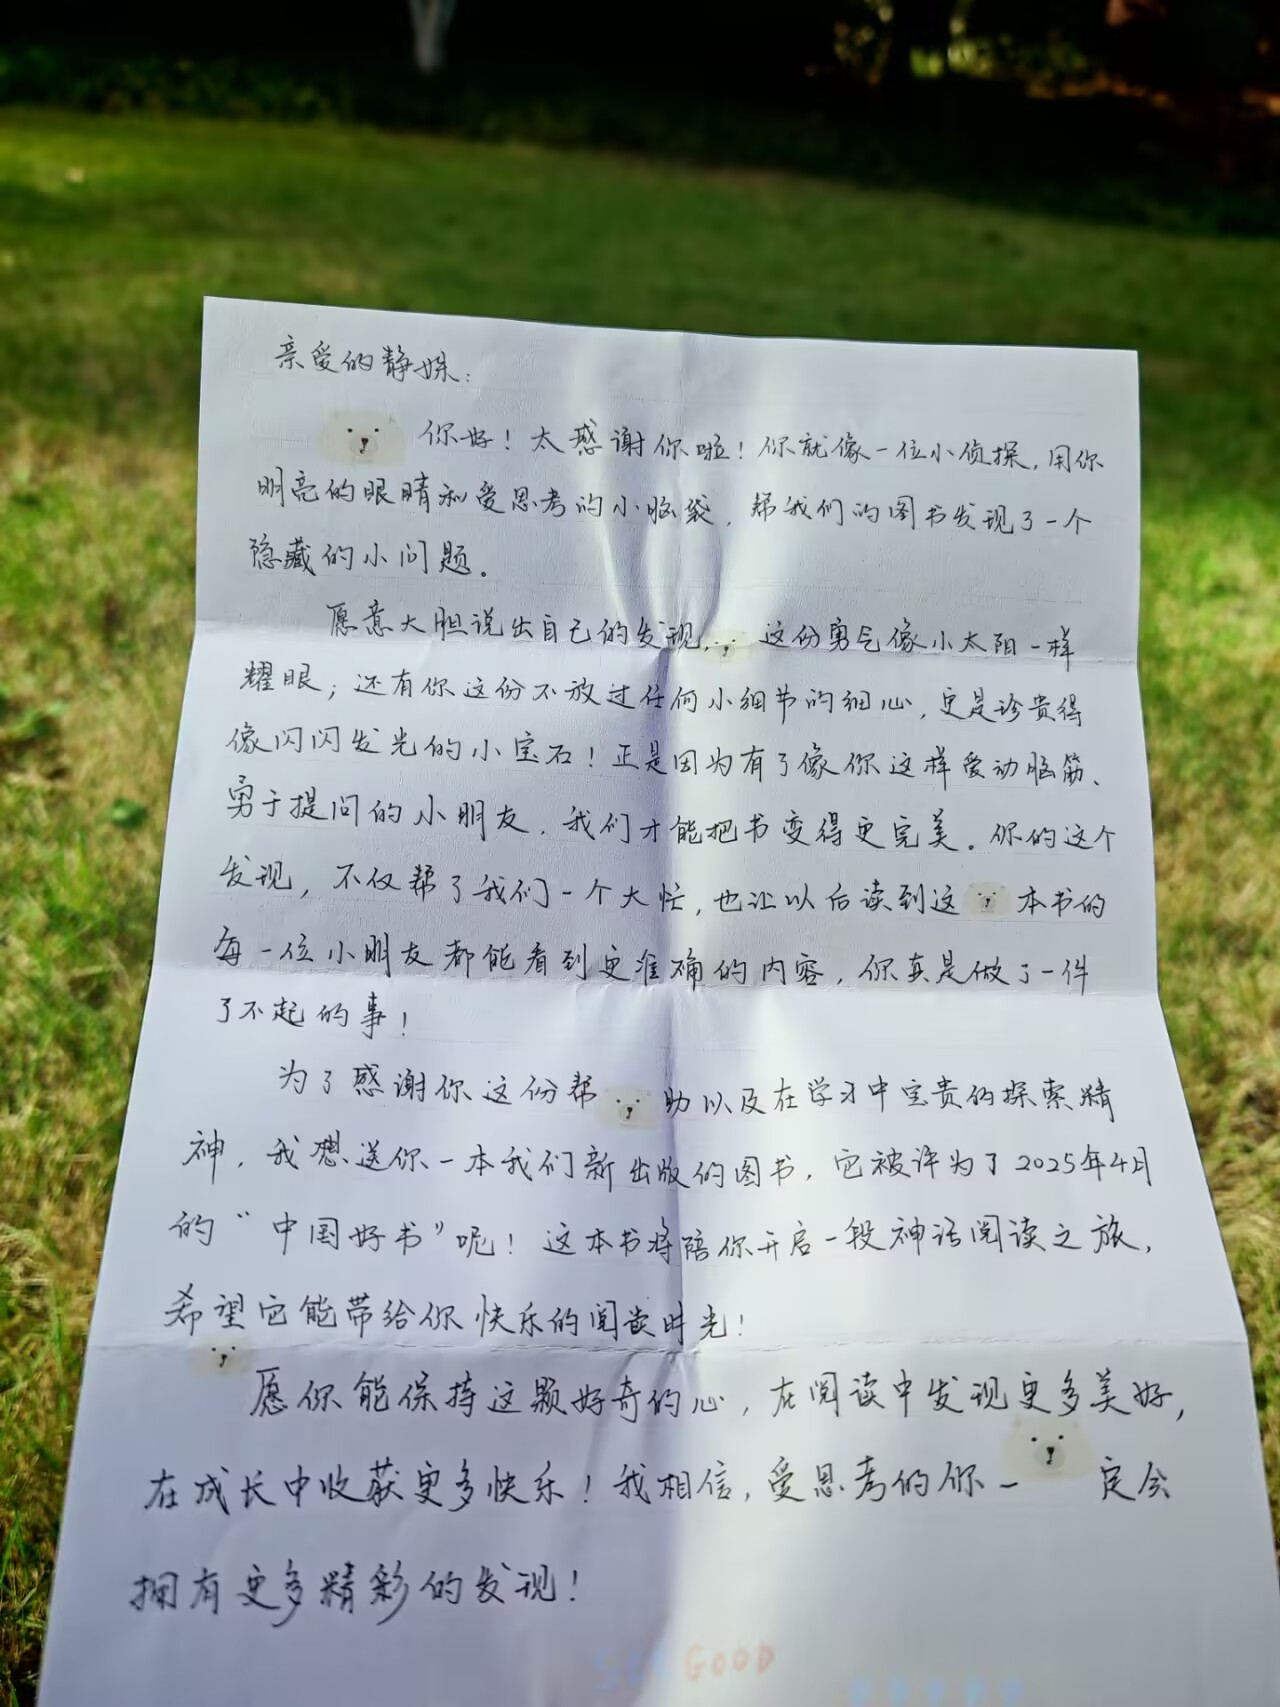 亲爱的静姝：
你好！太感谢你啦！你就像一位小侦探，用你
明亮的眼睛和爱思考的小脑袋，帮我们的图书发现了一个
隐藏的小问题。
愿意大胆说出自己的发现，这份勇气像小太阳一样
耀眼；还有你这份不放过任何小细节的细心，更是珍贵得
像闪闪发光的小宝石！正是因为有了像你这样爱动脑筋、
勇于提问的小朋友，我们才能把书变得更完美。你的这个
发现，不仅帮了我们一个大忙，也让以后读到这本书的
每一位小朋友都能看到更准确的内容，你真是做了一件
了不起的事！
为了感谢你这份帮助以及在学习中宝贵的探索精
神，我想送你一本我们新出版的图书，它被评为了2025年4月
的“中国好书”呢！这本书将陪你开启一段神话阅读之旅，
希望它能带给你快乐的阅读时光！
愿你能保持这颗好奇的心，在阅读中发现更多美好，
在成长中收获更多快乐！我相信，爱思考的你一定会
拥有更多精彩的发现！
GOOD